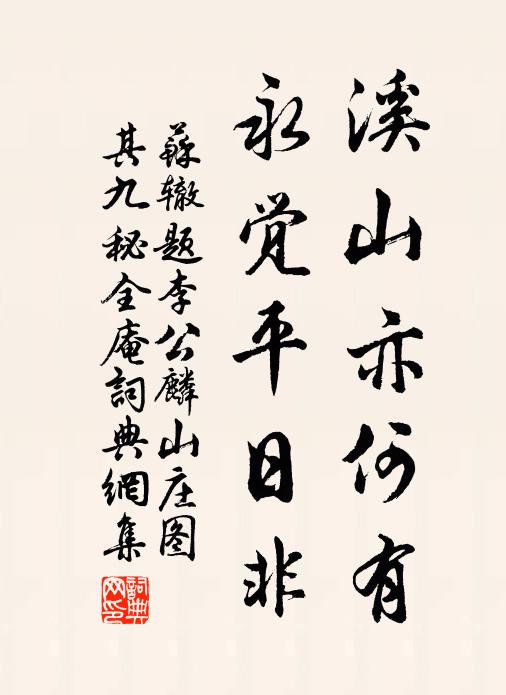 溪山亦何有
永觉平日非
蘇辙题李公麟山庄图
其九秘全庵詞典網集
詞典网印